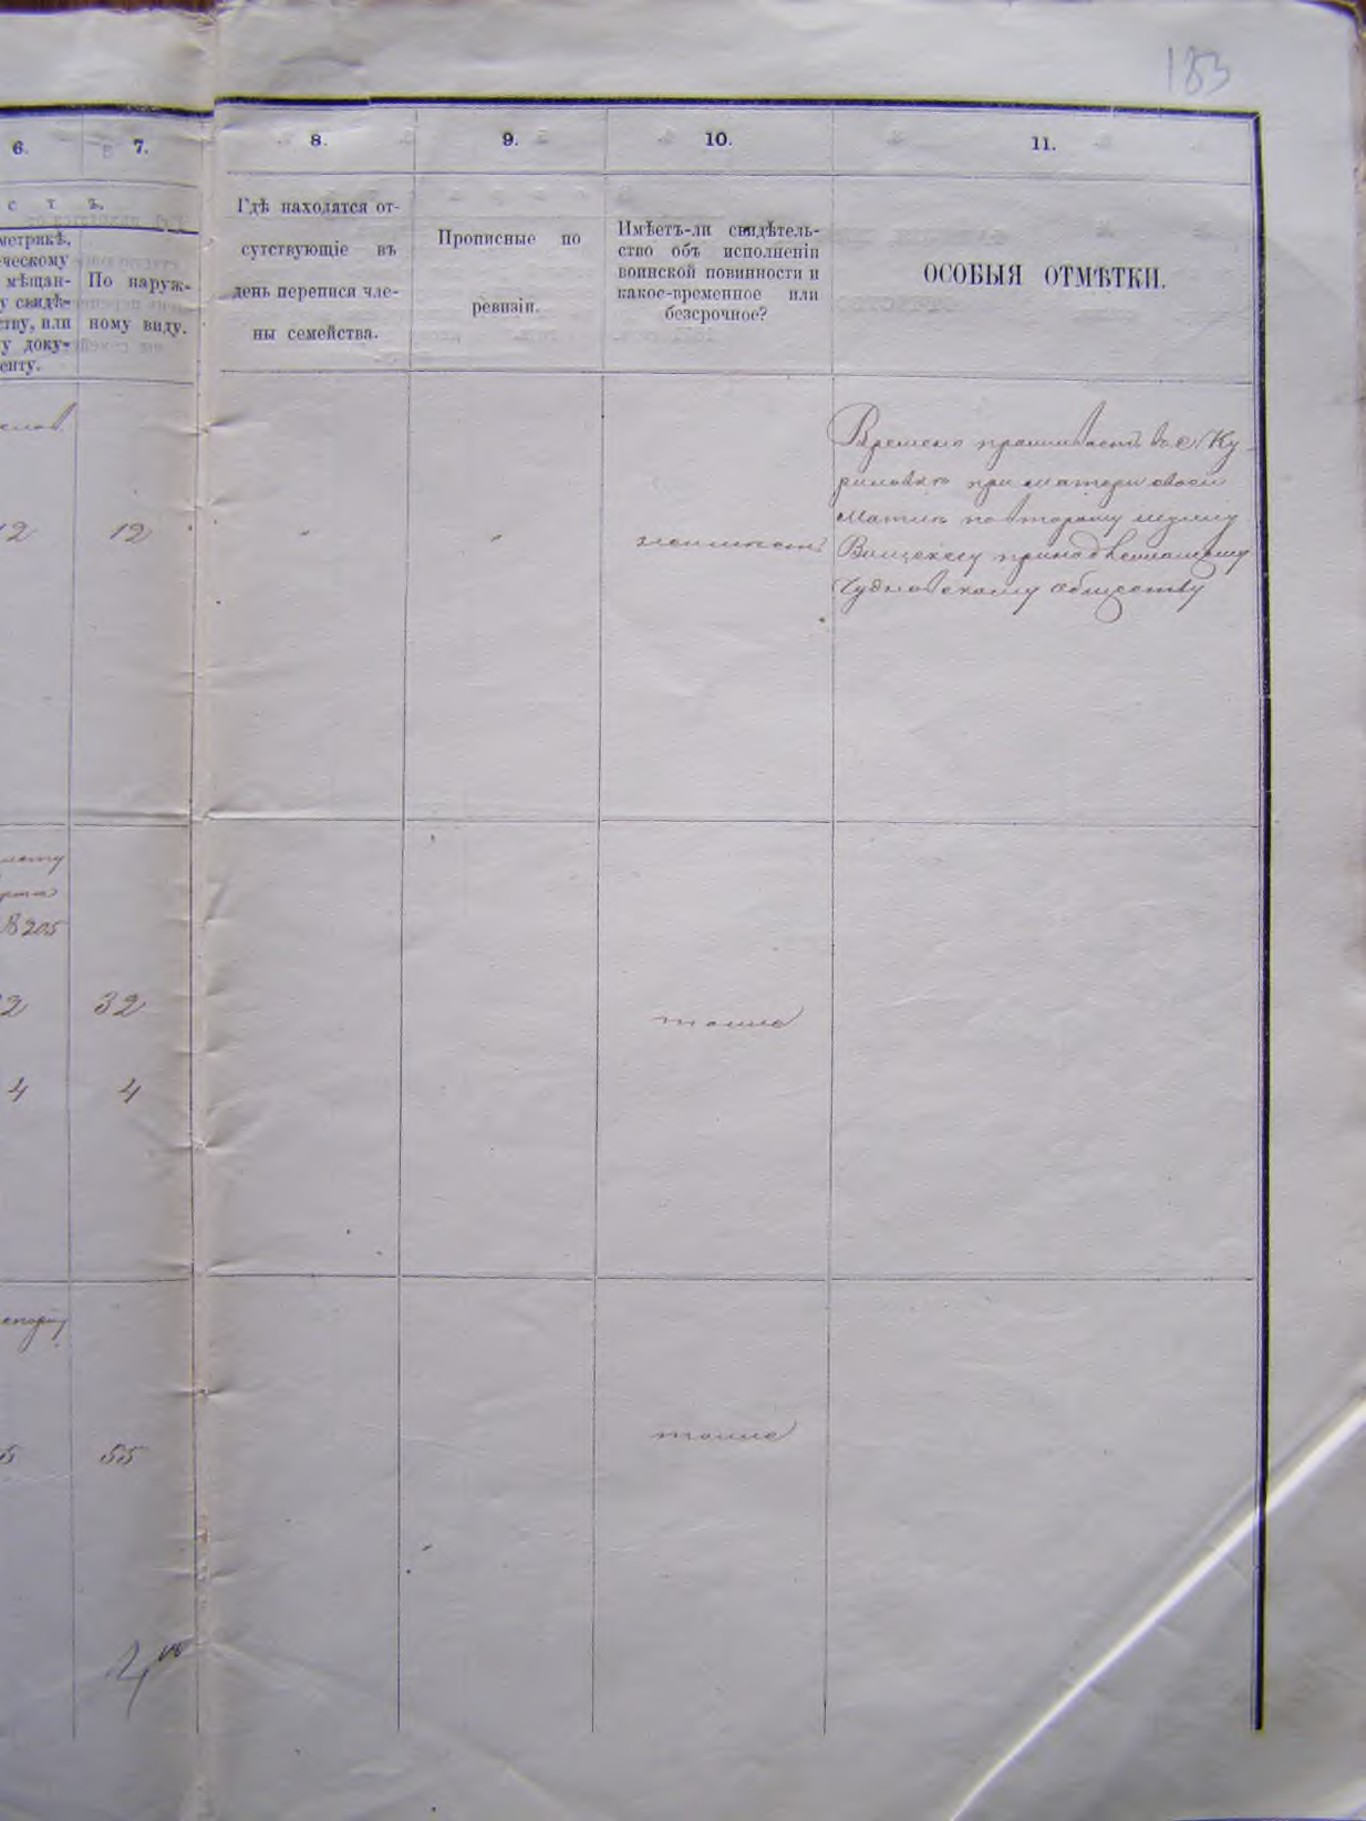 183
6.
7.
8.
9.
10.
11.
с т ъ.
метрикѣ,
ческому
мѣщан-
у свидѣ-
ству, или
у доку-
енту.
По наруж-
ному виду.
Гдѣ находятся от-
сутствующіе въ
день переписи чле-
ны семейства.
Прописные по
ревизіи.
Имѣетъ-ли свидѣтель-
ство объ исполненіи
воинской повинности и
какое-временное или
безсрочное?
ОСОБЫЯ ОТМѢТКИ.
12
неимѣетъ
Времено проживаетъ въ с. Ку-
риловкѣ при матери своей
по второму мужу
принадлежащему
Чудновскому обществу
205
2
32
тоже
4
4
5
55
тоже